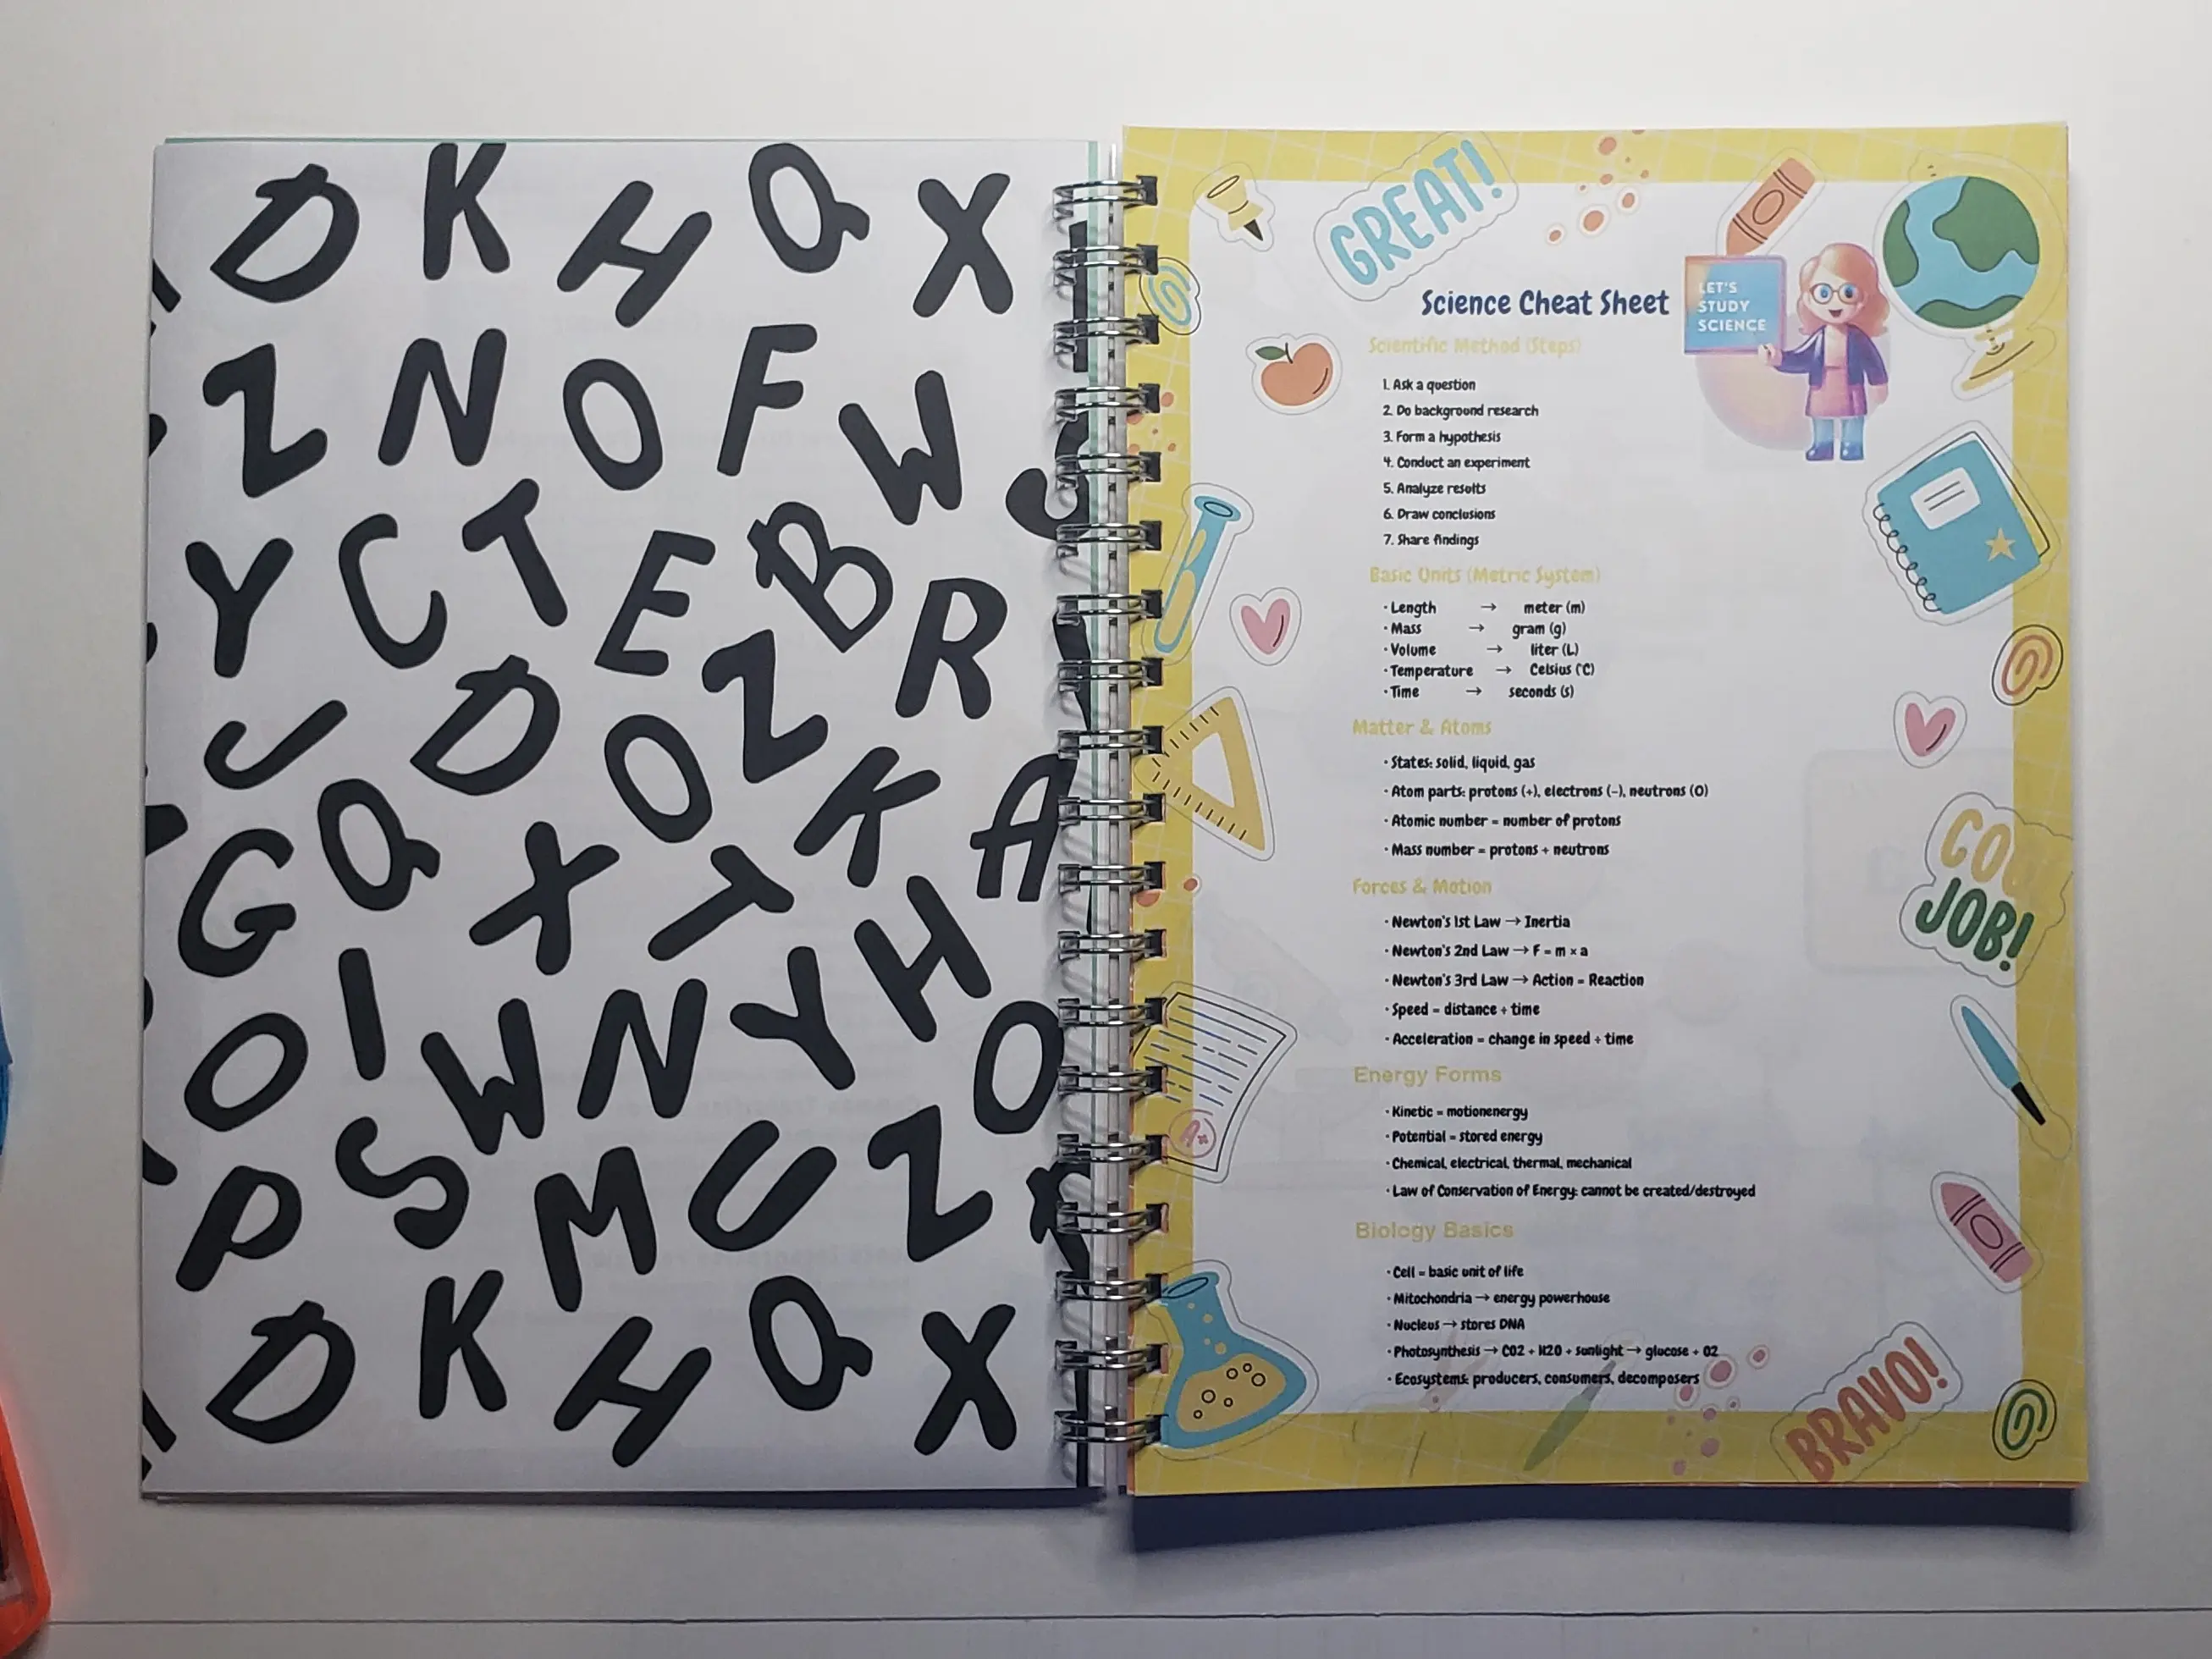 D K H Q X
Z N O F W
Y C T E B R
J D O Z K A
G Q X T H
O I W N Y O
P S M U Z
D K H Q X
GREAT!
LET'S
STUDY
SCIENCE
Science Cheat Sheet
Scientific Method (Steps)
1. Ask a question
2. Do background research
3. Form a hypothesis
4. Conduct an experiment
5. Analyze results
6. Draw conclusions
7. Share findings
Basic Units (Metric System)
· Length → meter (m)
· Mass → gram (g)
· Volume → liter (L)
· Temperature → Celsius (°C)
· Time → seconds (s)
Matter & Atoms
· States: solid, liquid, gas
· Atom parts: protons (+), electrons (-), neutrons (0)
· Atomic number = number of protons
· Mass number = protons + neutrons
Forces & Motion
· Newton's 1st Law → Inertia
· Newton's 2nd Law → F = m × a
· Newton's 3rd Law → Action = Reaction
· Speed = distance ÷ time
· Acceleration = change in speed ÷ time
Energy Forms
· Kinetic = motionenergy
· Potential = stored energy
· Chemical, electrical, thermal, mechanical
· Law of Conservation of Energy: cannot be created/destroyed
Biology Basics
· Cell = basic unit of life
· Mitochondria → energy powerhouse
· Nucleus → stores DNA
· Photosynthesis → CO2 + H2O + sunlight → glucose + O2
· Ecosystems: producers, consumers, decomposers
JOB!
A+
BRAVO!